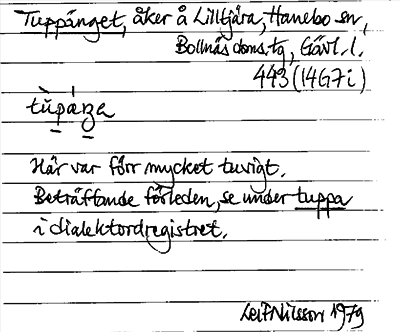 Tuppänget, åker å Lilltjära, Hanebo sn,
Bollnäs doms.tg, Gävl. l.
443 (14G7i)
tùpáŋa
Här var förr mycket tuvigt.
Beträffande förleden, se under tuppa
i dialektordregistret.
Leif Nilsson 1979